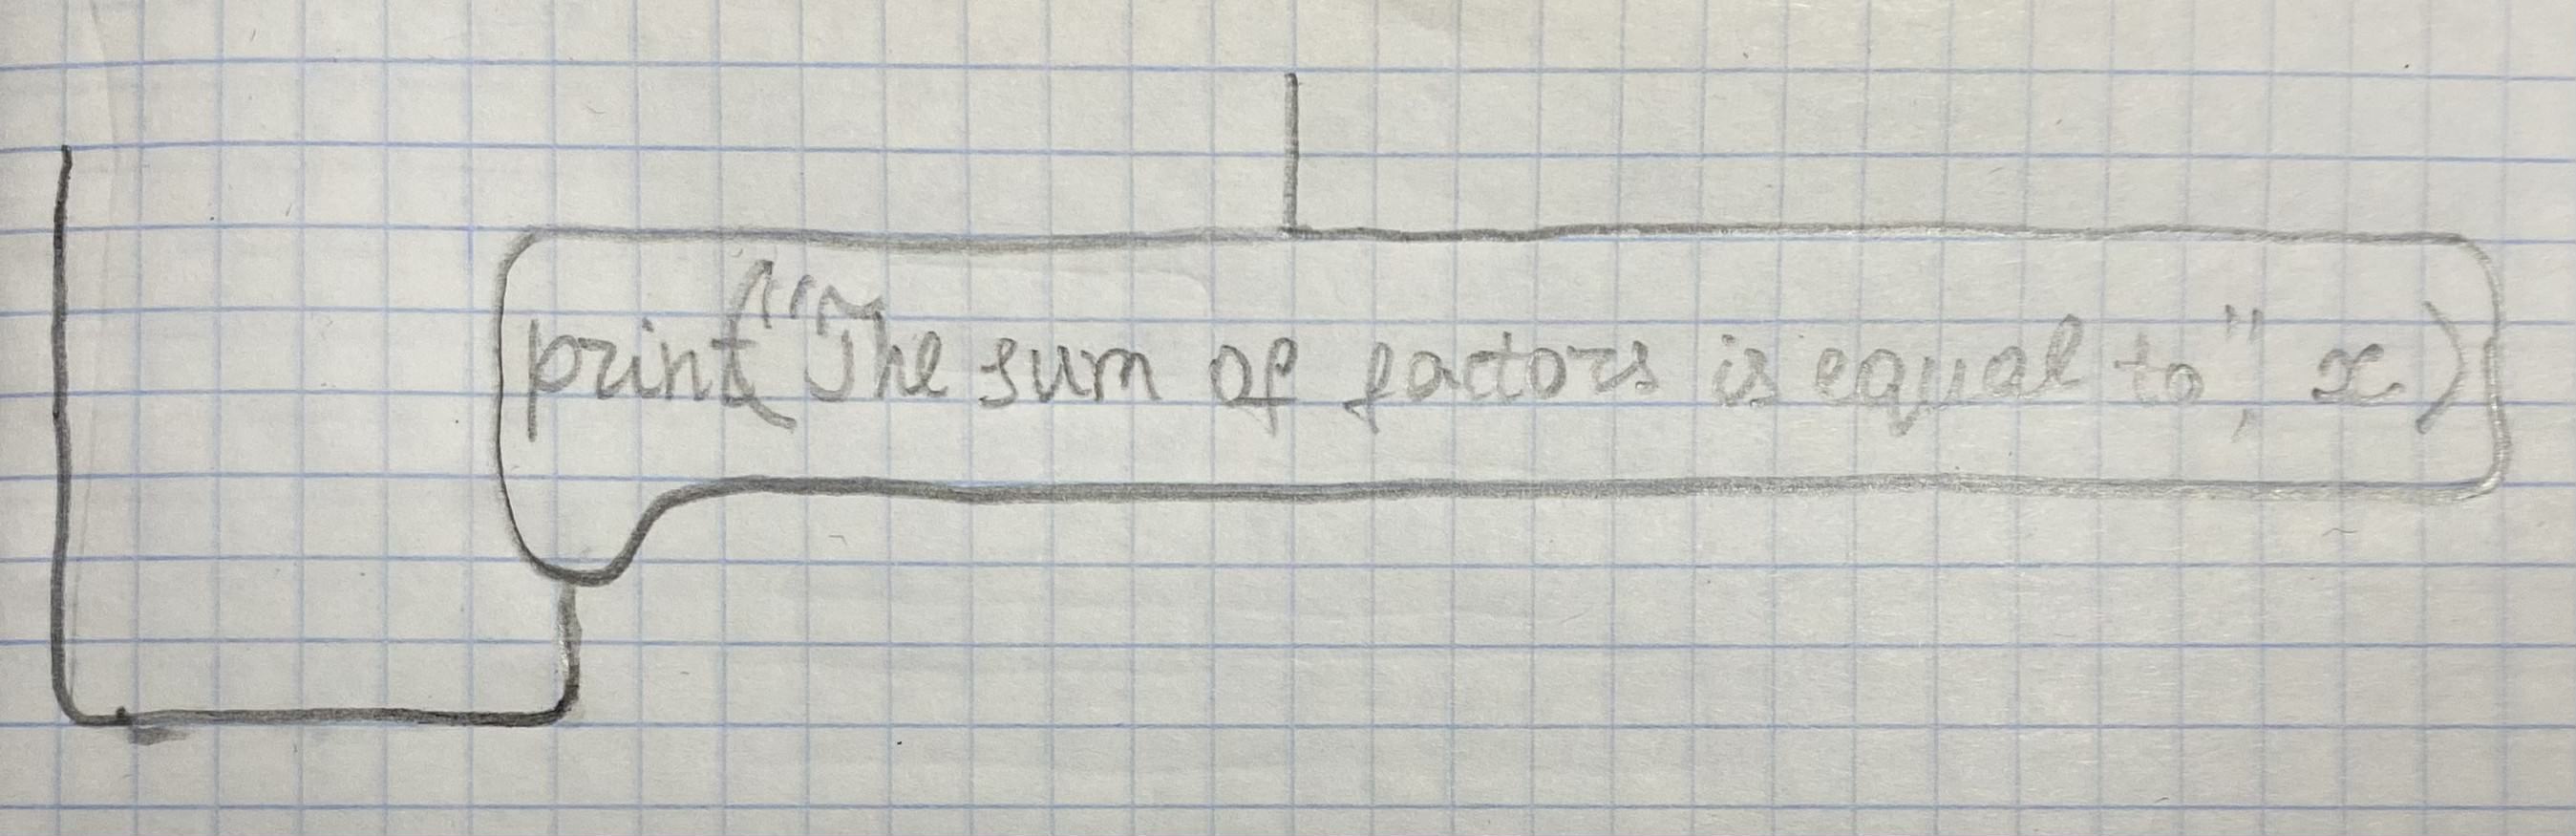 print("The sum of factors is equal to", x)